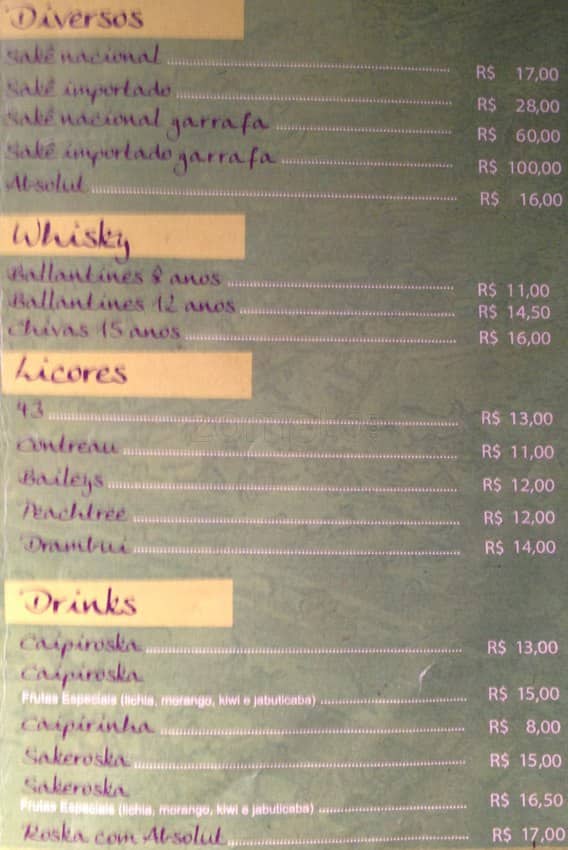 Diversos
Sakê nacional R$ 17,00
Sakê importado R$ 28,00
Sakê nacional garrafa R$ 60,00
Sakê importado garrafa R$ 100,00
Absolut R$ 16,00
Whisky
Ballantines 8 anos R$ 11,00
Ballantines 12 anos R$ 14,50
Chivas 15 anos R$ 16,00
Licores
43 R$ 13,00
Contreau R$ 11,00
Baileys R$ 12,00
Peachtree R$ 12,00
Drambui R$ 14,00
Drinks
Caipiroska R$ 13,00
Caipiroska
Frutas Especiais (lichia, morango, kiwi e jabuticaba) R$ 15,00
Caipirinha R$ 8,00
Sakeroska R$ 15,00
Sakeroska
Frutas Especiais (lichia, morango, kiwi e jabuticaba) R$ 16,50
Roska com Absolut R$ 17,00